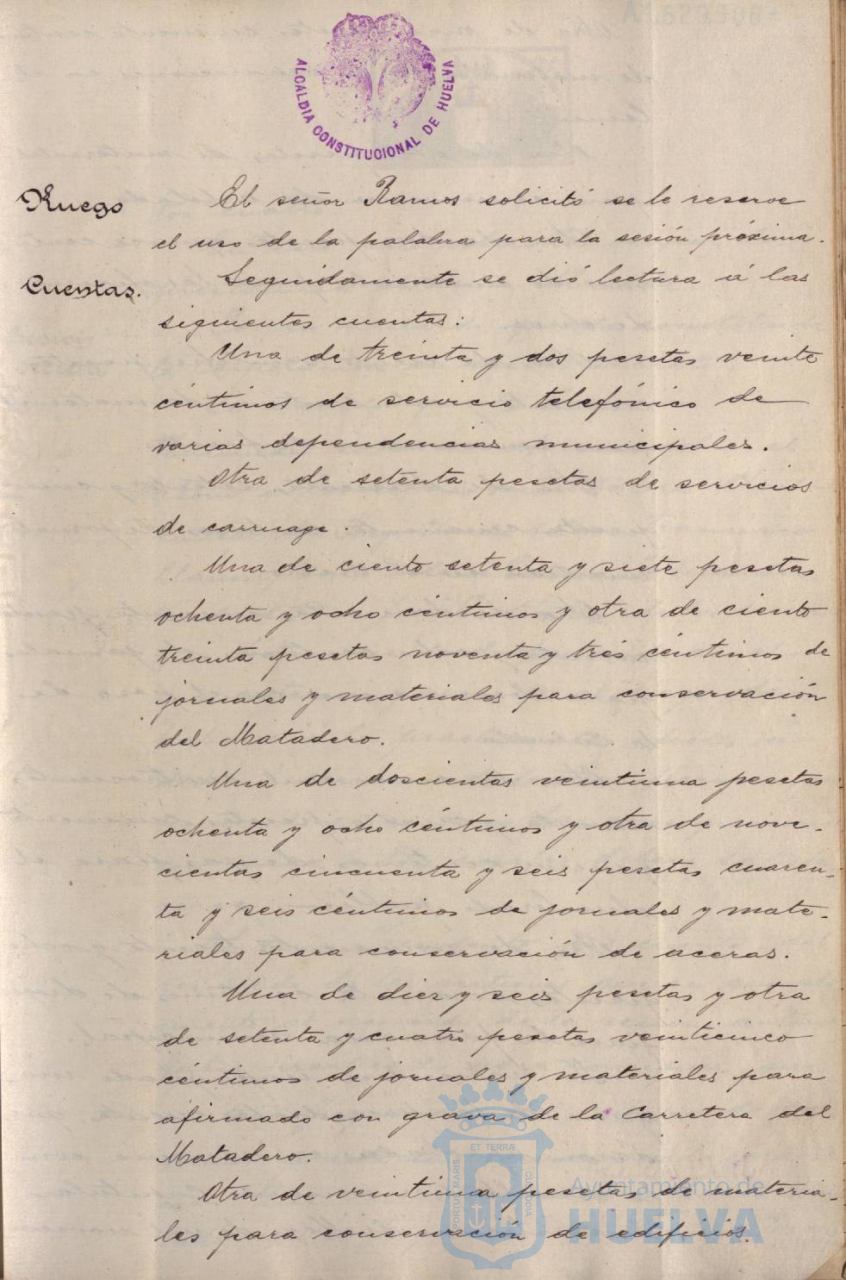 ALCALDIA CONSTITUCIONAL DE HUELVA
Ruego
El señor Ramos solicitó se le reserve
el uso de la palabra para la sesión próxima.
Cuentas.
Seguidamente se dió lectura á las
siguientes cuentas:
Una de treinta y dos pesetas veinte
céntimos de servicio telefónico de
varias dependencias municipales.
Otra de setenta pesetas de servicios
de carruage.
Una de ciento setenta y siete pesetas
ochenta y ocho céntimos y otra de ciento
treinta pesetas noventa y tres céntimos de
jornales y materiales para conservación
del Matadero.
Una de doscientas veintiuna pesetas
ochenta y ocho céntimos y otra de nove-
cientas cincuenta y seis pesetas cuaren-
ta y seis céntimos de jornales y mate-
riales para conservación de aceras.
Una de diez y seis pesetas y otra
de setenta y cuatro pesetas veinticinco
céntimos de jornales y materiales para
afirmado con grava de la Carretera del
Matadero.
Otra de veintiuna pesetas de materia-
les para conservación de edificios.
PORTUS MARIS ET TERRÆ CUSTODIA
Ayuntamiento de
HUELVA